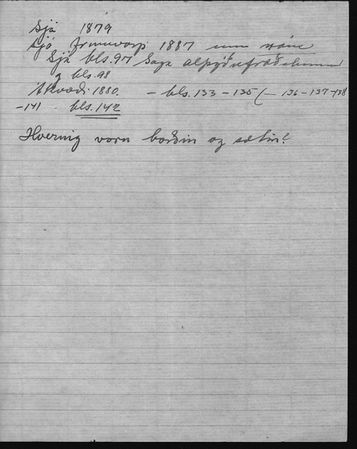 Sjá 1879
Sjá frumvarp 1887 um
Sjá bls. 97 Saga alþýðufræðslunnar
bls. 98
1880. – bls. 133 – 135 (– 136 – 137 – 138
– 141. bls. 142
Hvernig voru borðin og sætin?